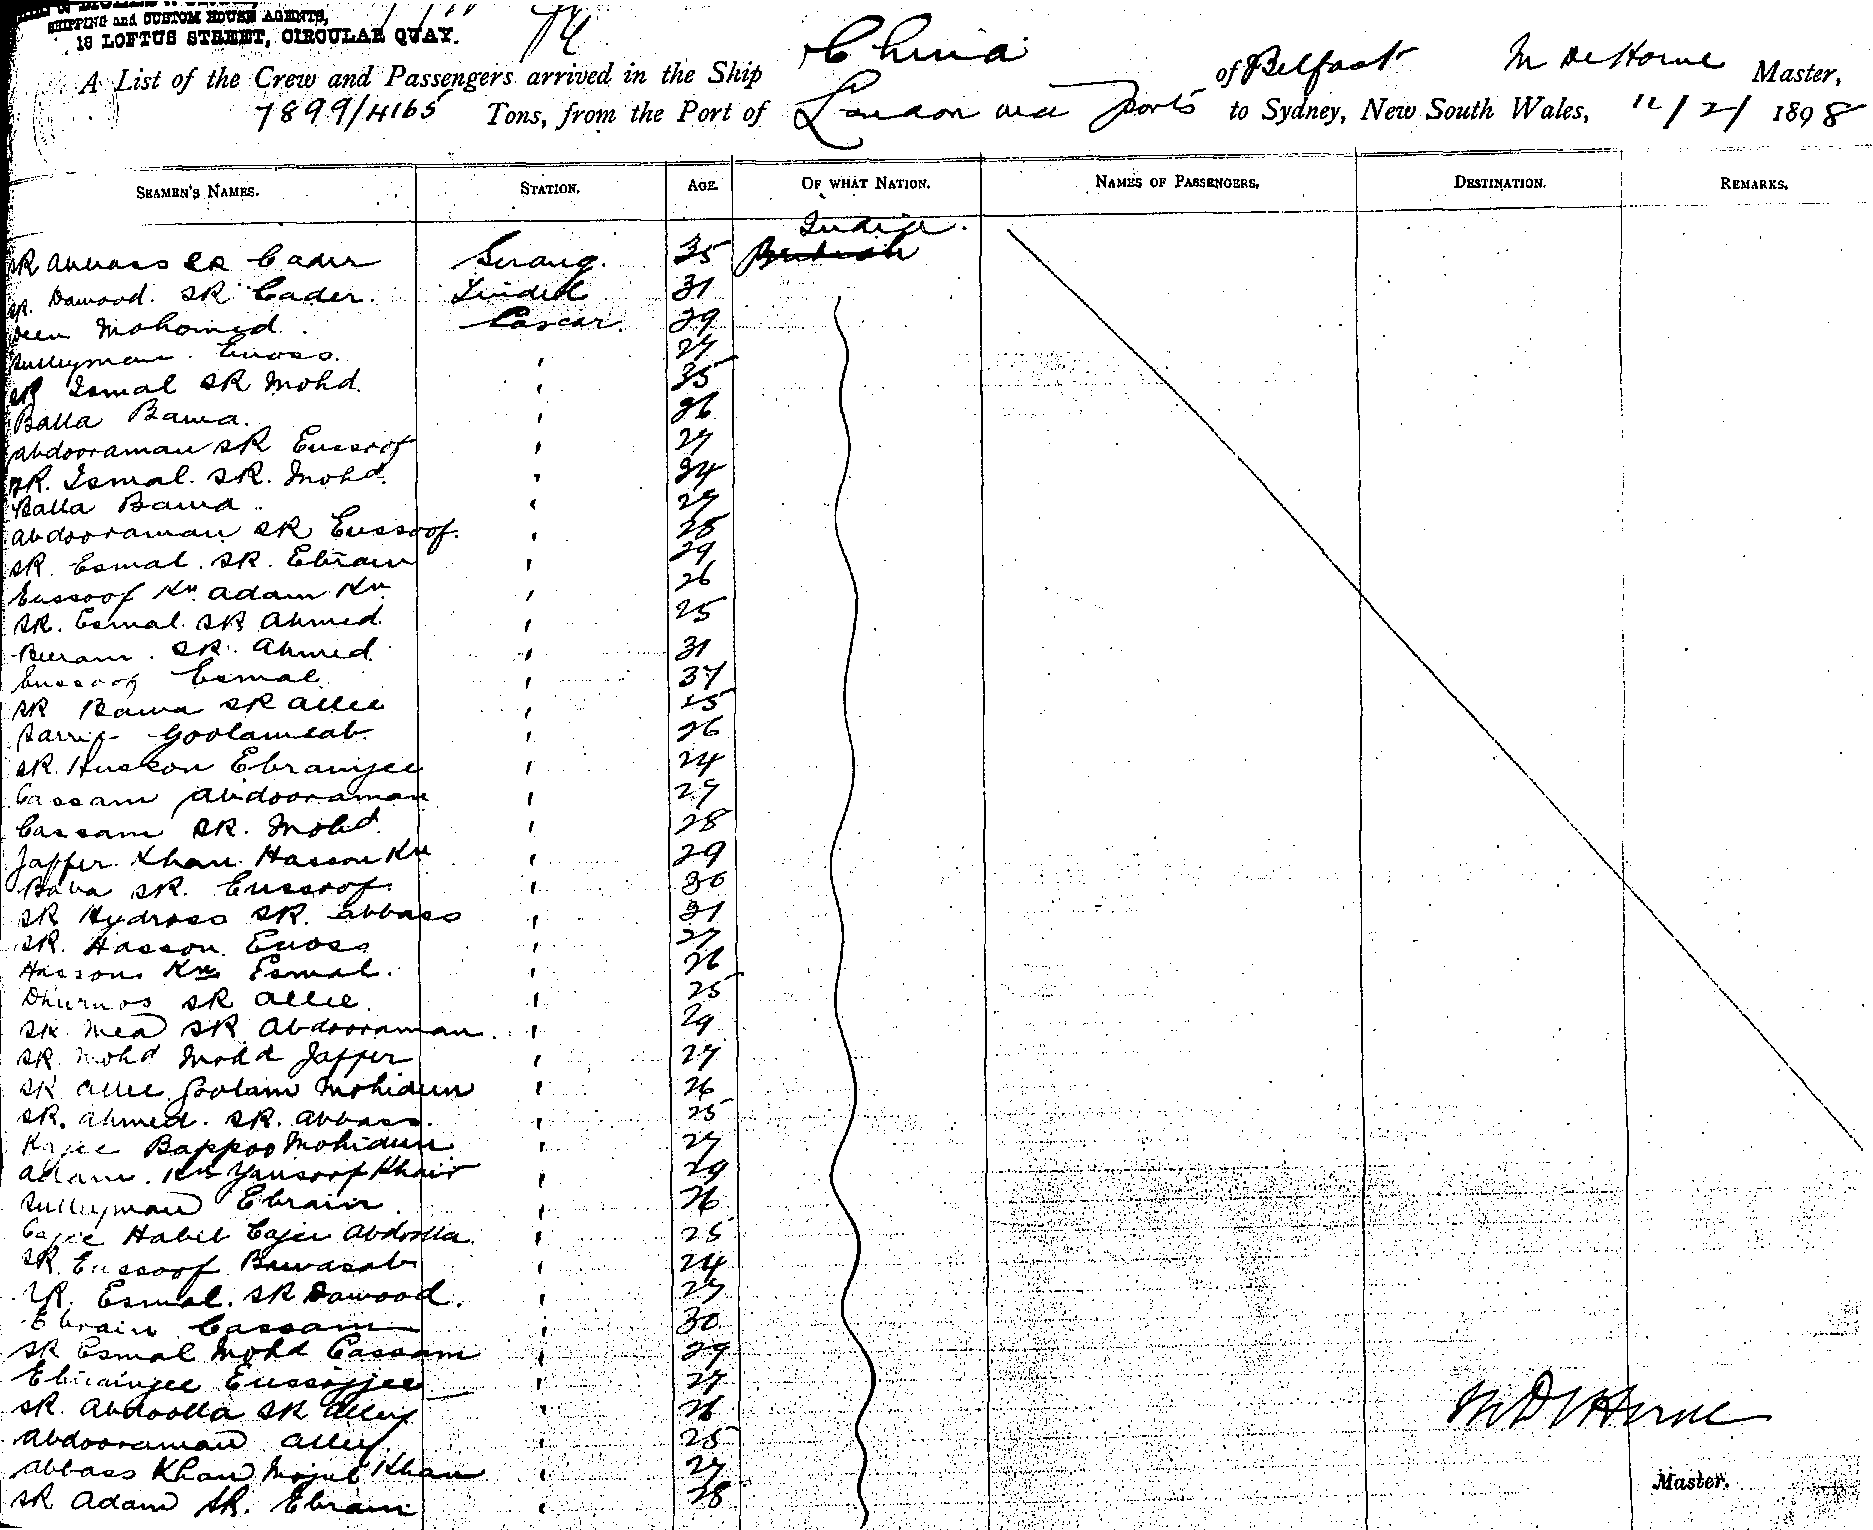 SHIPPING and CUSTOM HOUSE AGENTS,
18 LOFTUS STREET, CIRCULAR QUAY.
A List of the Crew and Passengers arrived in the Ship China of Belfast M De Horne Master,
7899/4165 Tons, from the Port of London and Ports to Sydney, New South Wales, 11/2/1898
SEAMEN'S NAMES. STATION. AGE. OF WHAT NATION. NAMES OF PASSENGERS. DESTINATION. REMARKS.
India.
SR Abbass SR Cader Serang. 35 British
SR. Dawood. SR Cader. Tindel 31
Deen Mohomed. Lascar. 29
Sulleyman Enoss. " 27
SR Ismal SR Mohd. " 35
Balla Bawa. " 26
Abdooraman SR Eussoof " 27
SR. Ismal. SR. Mohd. " 24
Balla Bawa. " 29
Abdooraman SR Eussoof. " 28
SR. Esmal. SR. Ebram " 29
Eussoof Kn. Adam Kn. " 26
SR. Esmal. SR Ahmed. " 25
SR. Ahmed. " 31
Eussoof Esmal. " 37
SR Bawa SR Allee " 25
Goolameab. " 26
SR. Husson Ebramjee " 24
Cassam Abdooraman " 27
Cassam SR. Mohd. " 28
Jaffer Khan Hasson Kn " 29
Baba SR. Eussoof. " 30
SR Hydross SR. Abbass " 31
SR. Hasson Enoss " 27
Hasson Kn Esmal. " 26
SR Allee. " 25
SR Mea SR Abdooraman. " 29
SR Mohd Mohd Jaffer " 27
SR Allee Goolam Mohideen " 26
SR. Ahmed. SR. Abbass. " 25
Kajee Bappoo Mohideen " 27
Adam. Kn Yousoof Khan " 29
Sulleyman Ebraim. " 26
Cajee Habet Cajee Abdoolla. " 25
SR. Eussoof Bawasab " 24
SR. Esmal. SR Dawood. " 29
Ebraim Cassam " 30
SR Esmal Mohd Cassam " 29
Ebramjee Eussofjee " 27
SR. Abdoolla SR Alley " 26
Abdooraman Alley. " 25
Abbass Khan Khan " 27
SR Adam SR. Ebram " 28
M De Horne
Master.